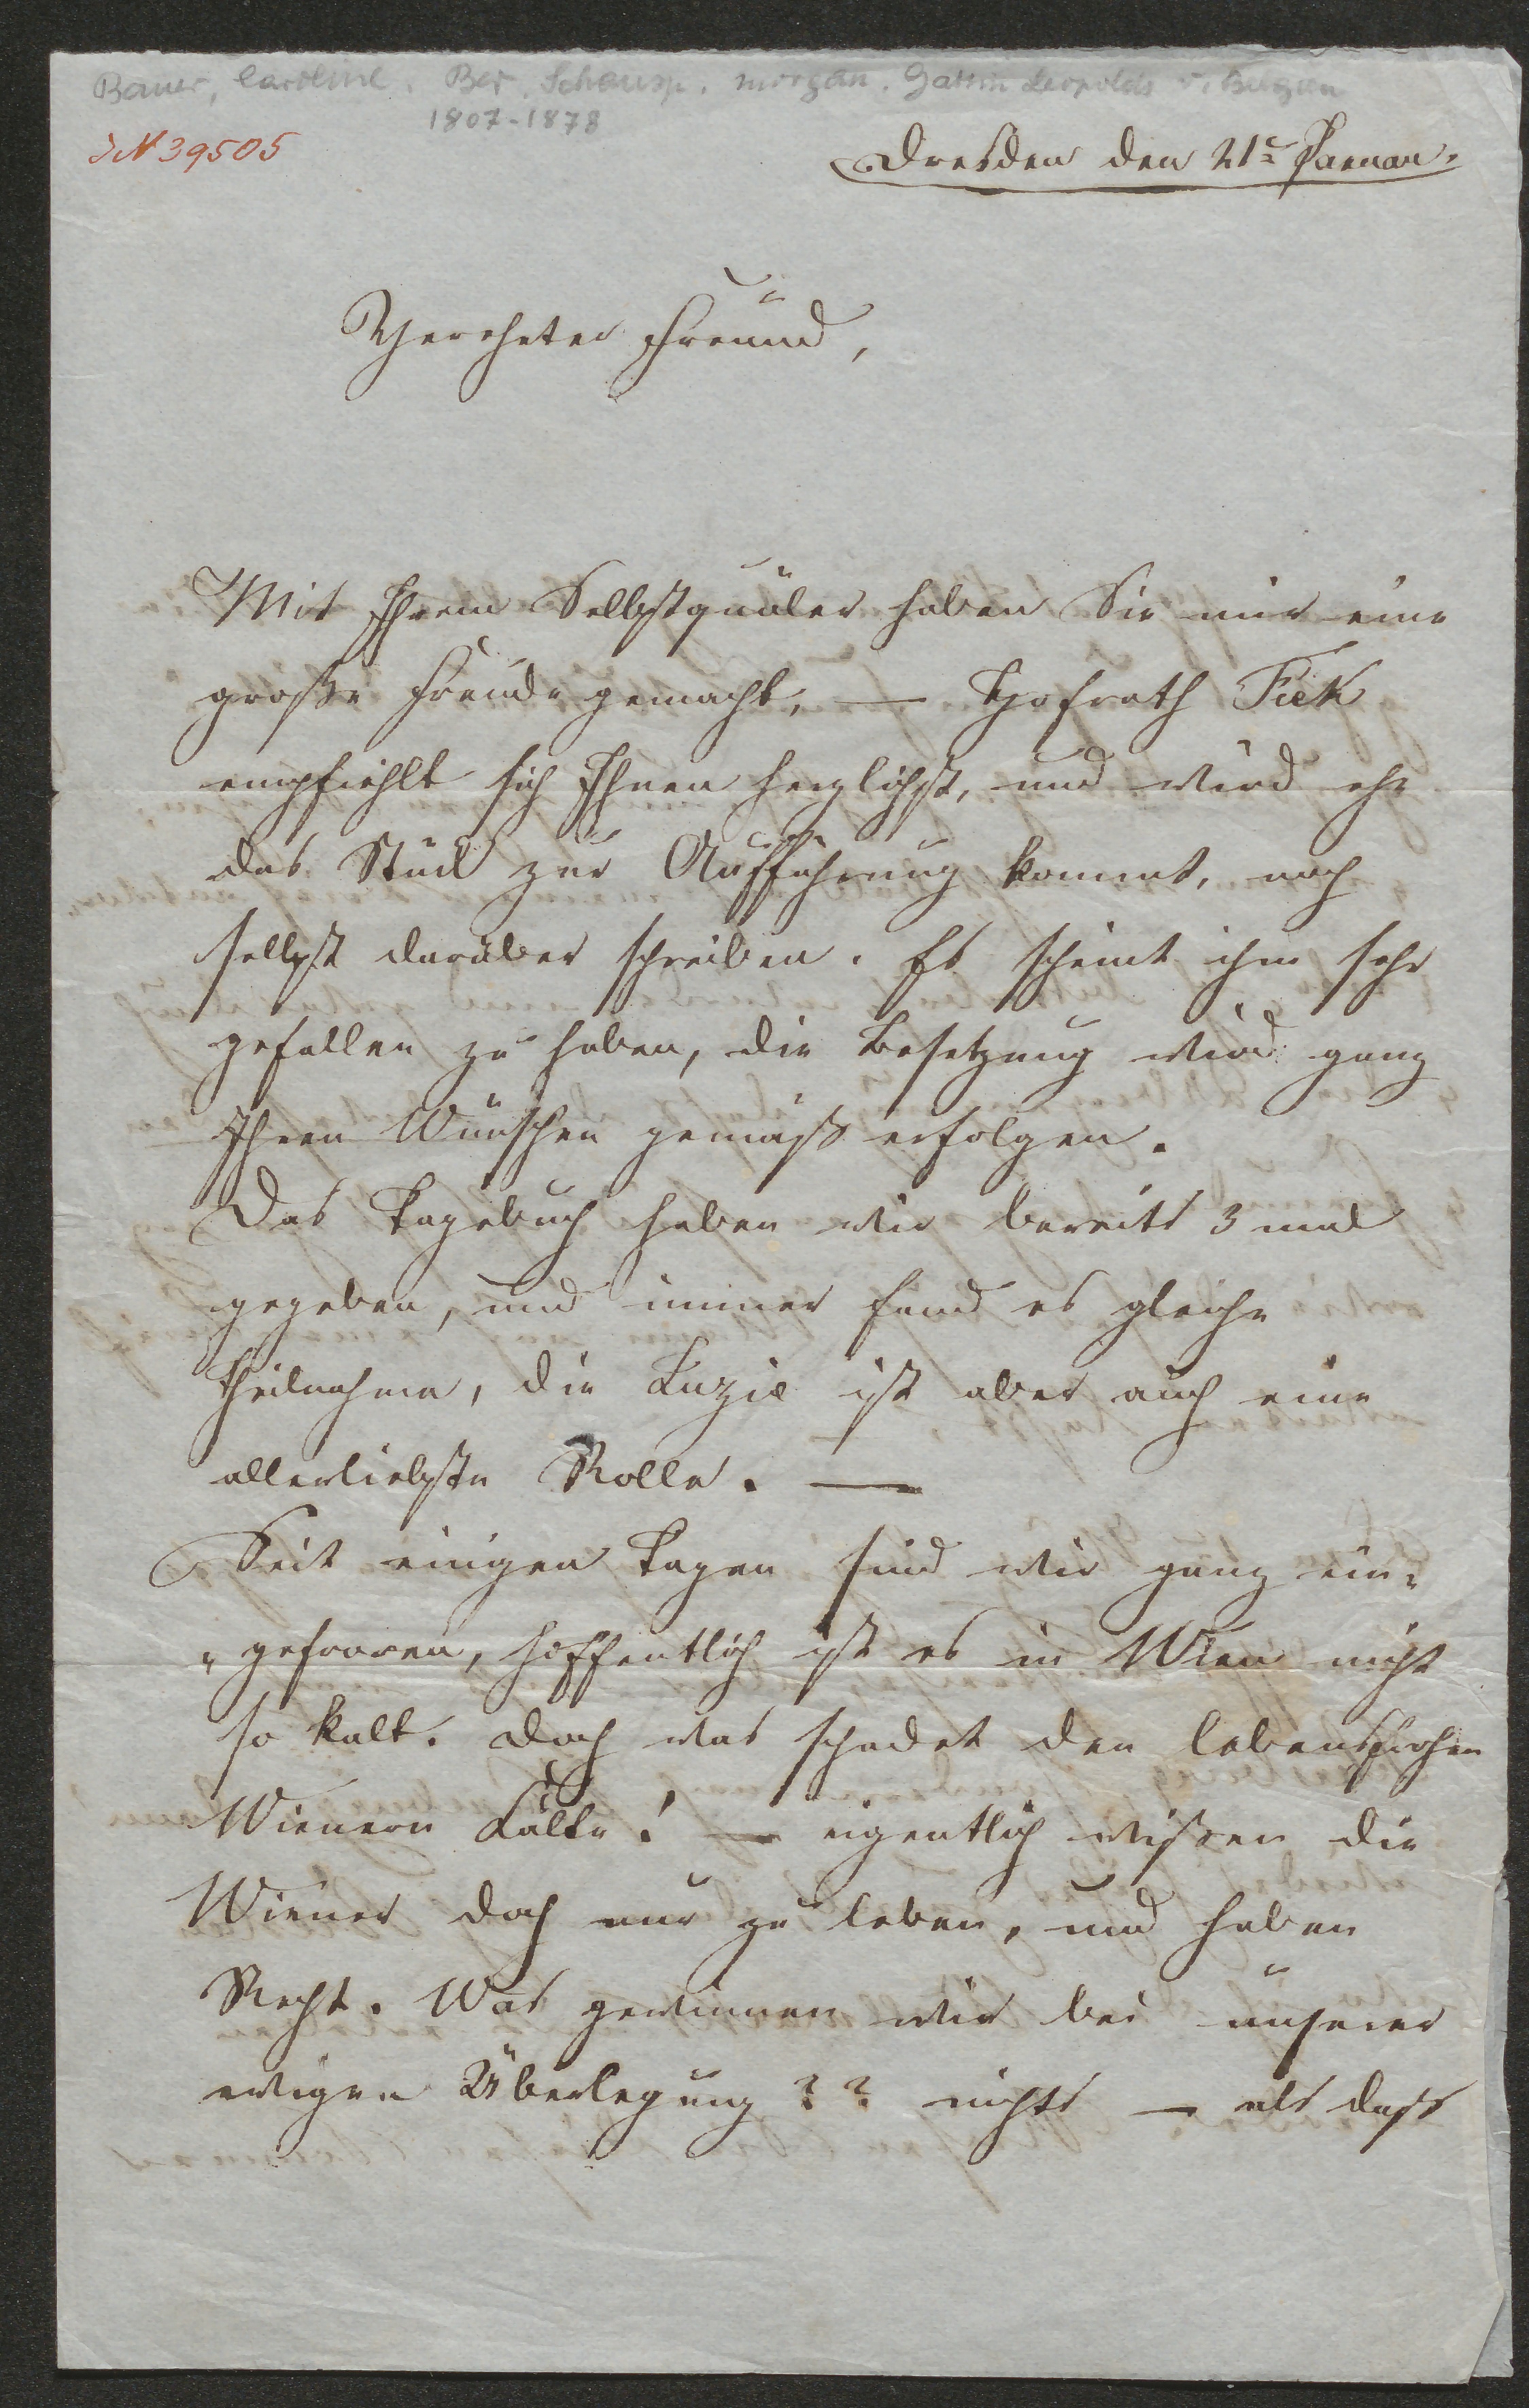 Bauer, Caroline. Ber. Schausp. morgan. Gattin Leopolds v. Belgien
1807-1878
IN 39505
Dresden den 21t Januar.
Verehrter Freund,
Mit Ihrem Selbstquäler haben Sie mir eine
große Freude gemacht, — Hofrath Tiek
empfiehlt sich Ihnen herzlichst, und wird ehe
das Stück zur Aufführung kommt, noch
selbst darüber schreiben. Es scheint ihm sehr
gefallen zu haben, die Besetzung wird ganz
Ihren Wünschen gemäß erfolgen.
Das Tagebuch haben wir bereits 3 mal
gegeben, und immer fand es gleiche
Theilnahme, die Luzie ist aber auch eine
allerliebste Rolle. —
Seit einigen Tagen sind wir ganz ein-
-gefroren, hoffentlich ist es in Wien nicht
so kalt. Doch was schadet den lebensfrohen
Wienern Kälte! — eigentlich wißen die
Wiener doch nur zu leben, und haben
Recht. Was gewinnen wir bei unserer
ewigen Überlegung?? nichts — als daß